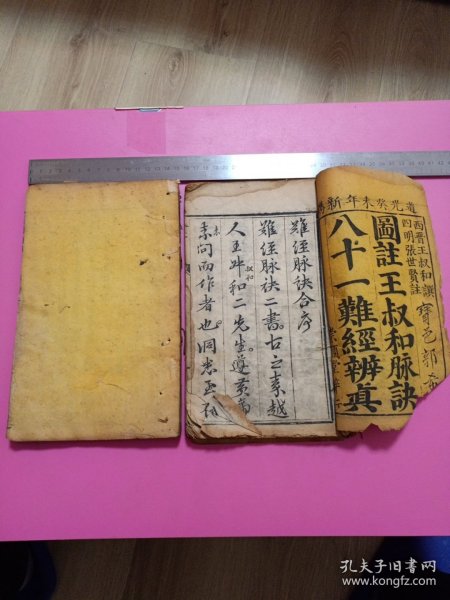 道光癸未年新
西晉王叔和譔
四明張世賢註
圖註王叔和脉訣
八十一難經辨真
寶邑郭
難經脉訣合序
難經脉訣二書古之秦越
人王叔和二先生遵黃帝
素問而作者也洞悉至
孔夫子旧书网
www.kongfz.com